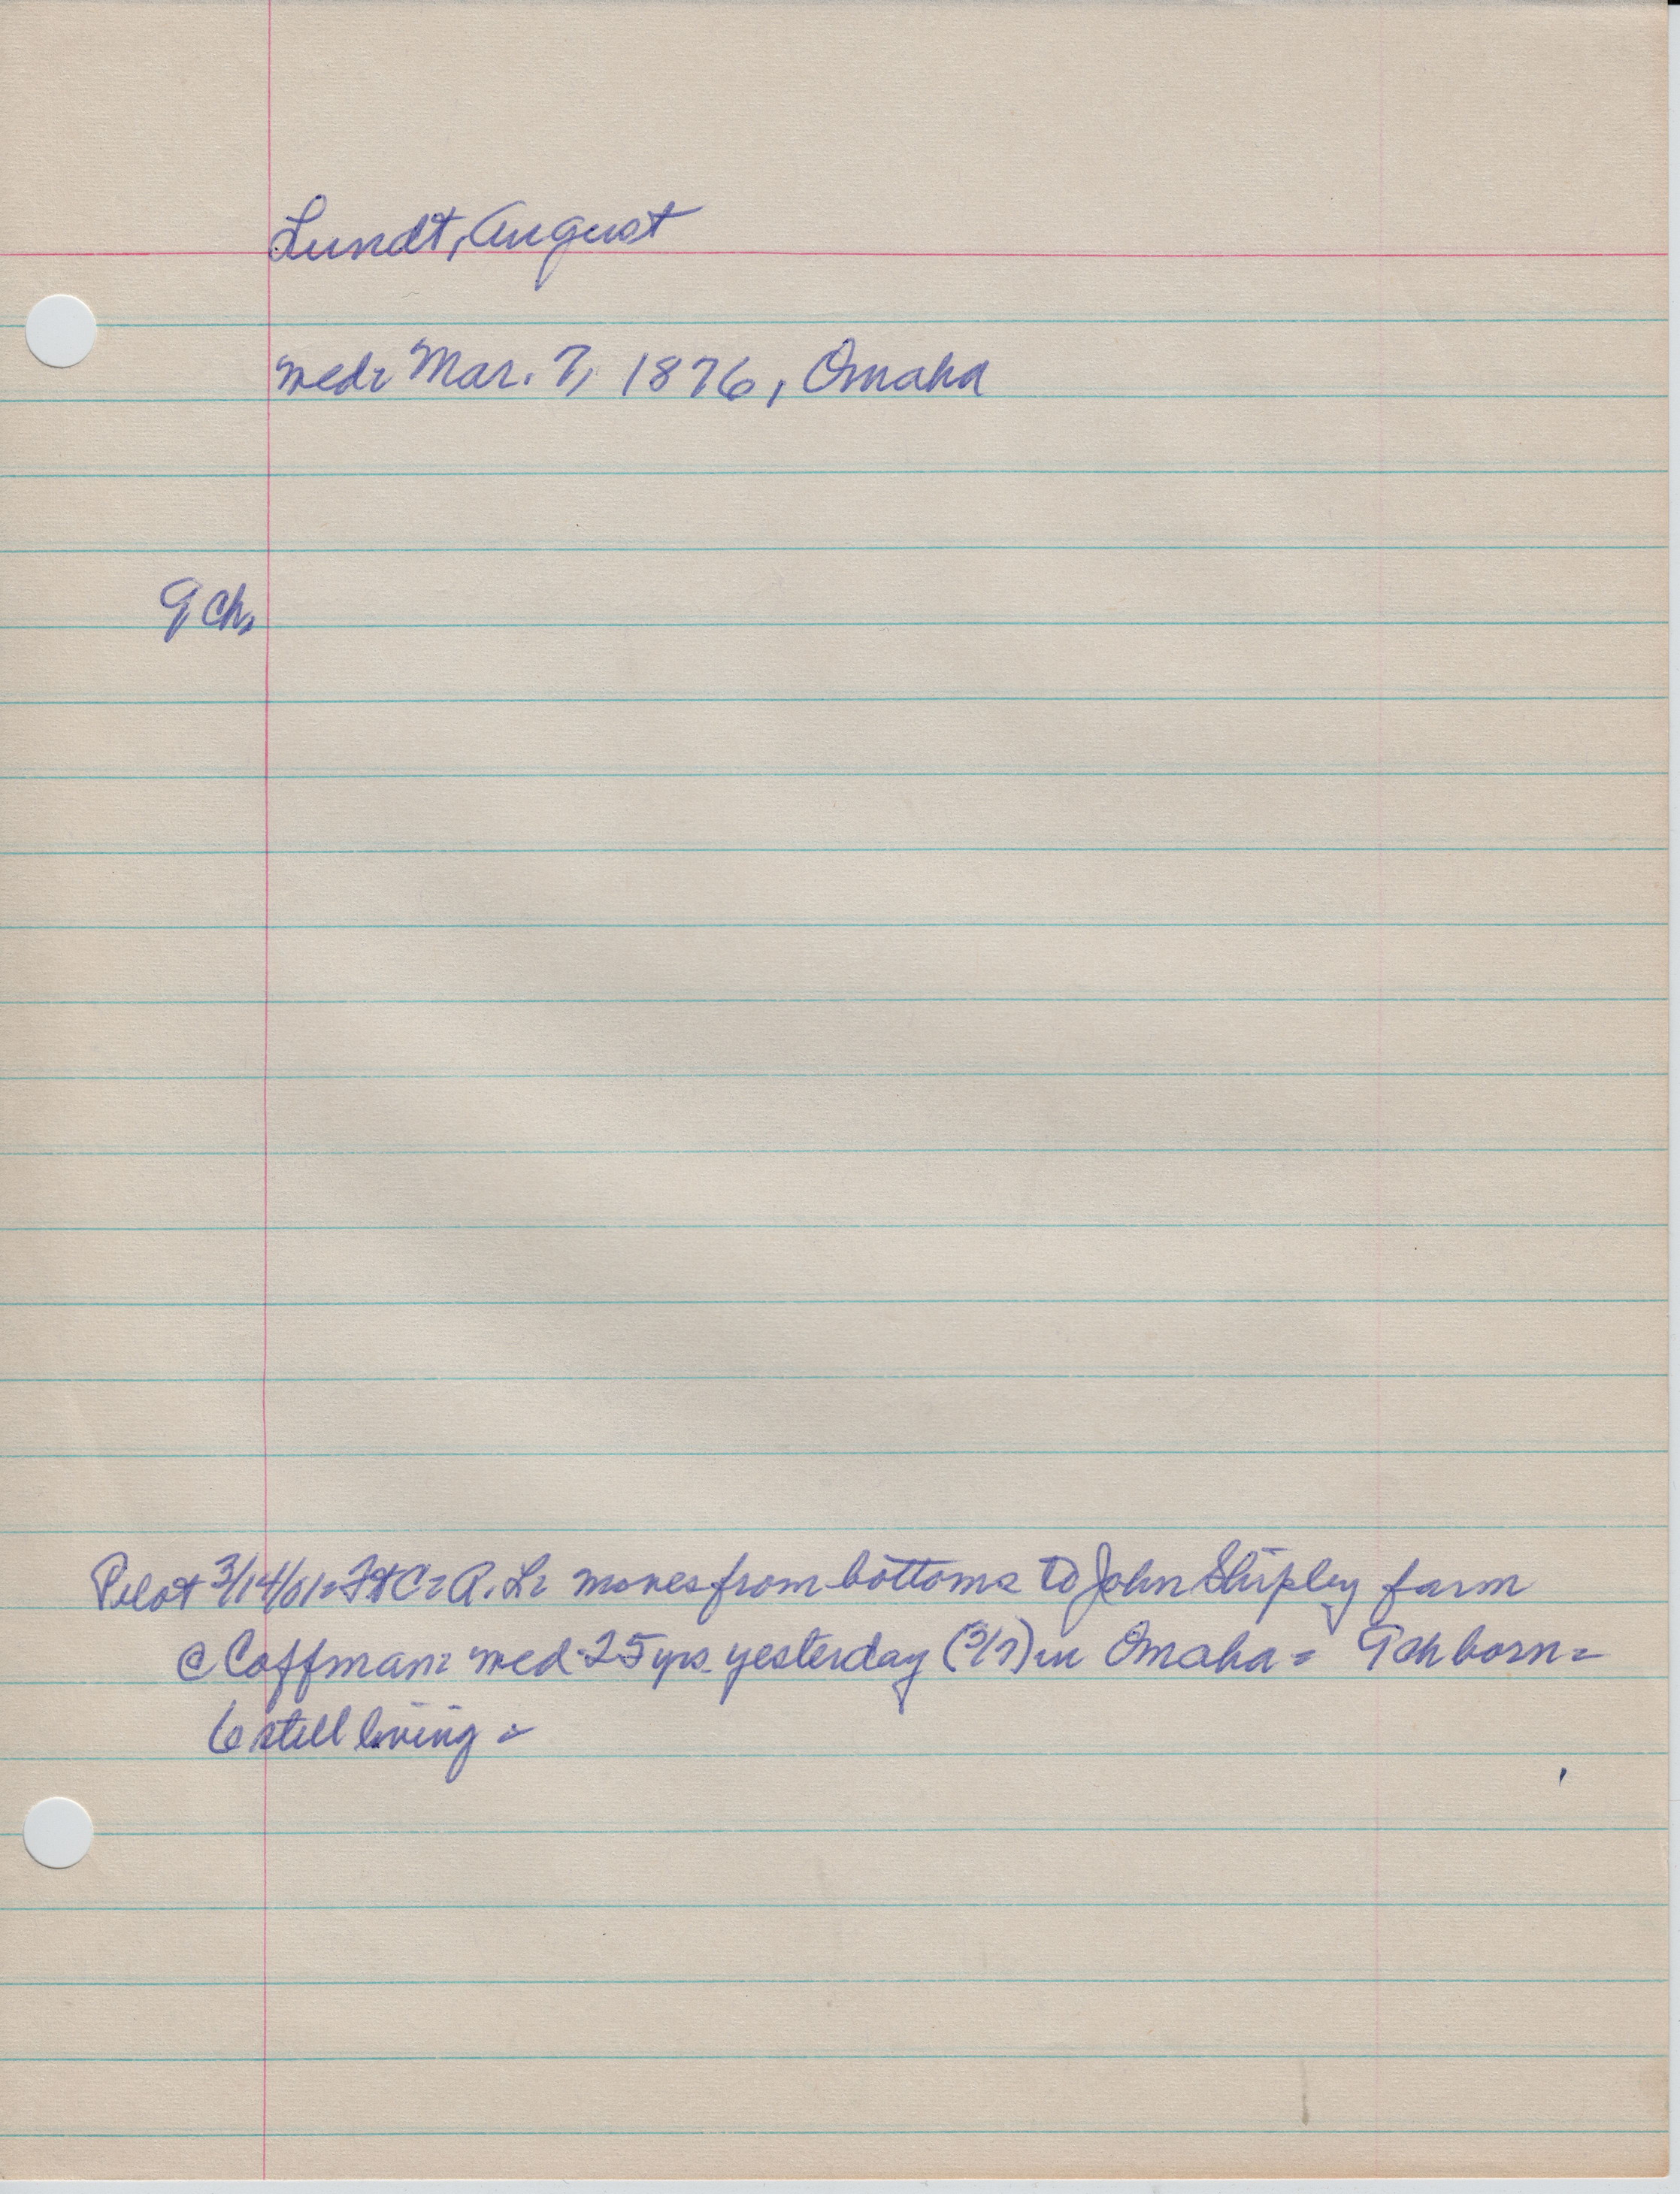 Lundt, August
wed: Mar. 7, 1876, Omaha
9 ch.
Pilot 3/14/01= Ft C= A. L: moves from bottoms to John Shipley farm
@ Coffman: wed 25 yrs. yesterday (3/7) in Omaha = 9 ch born =
6 still living =